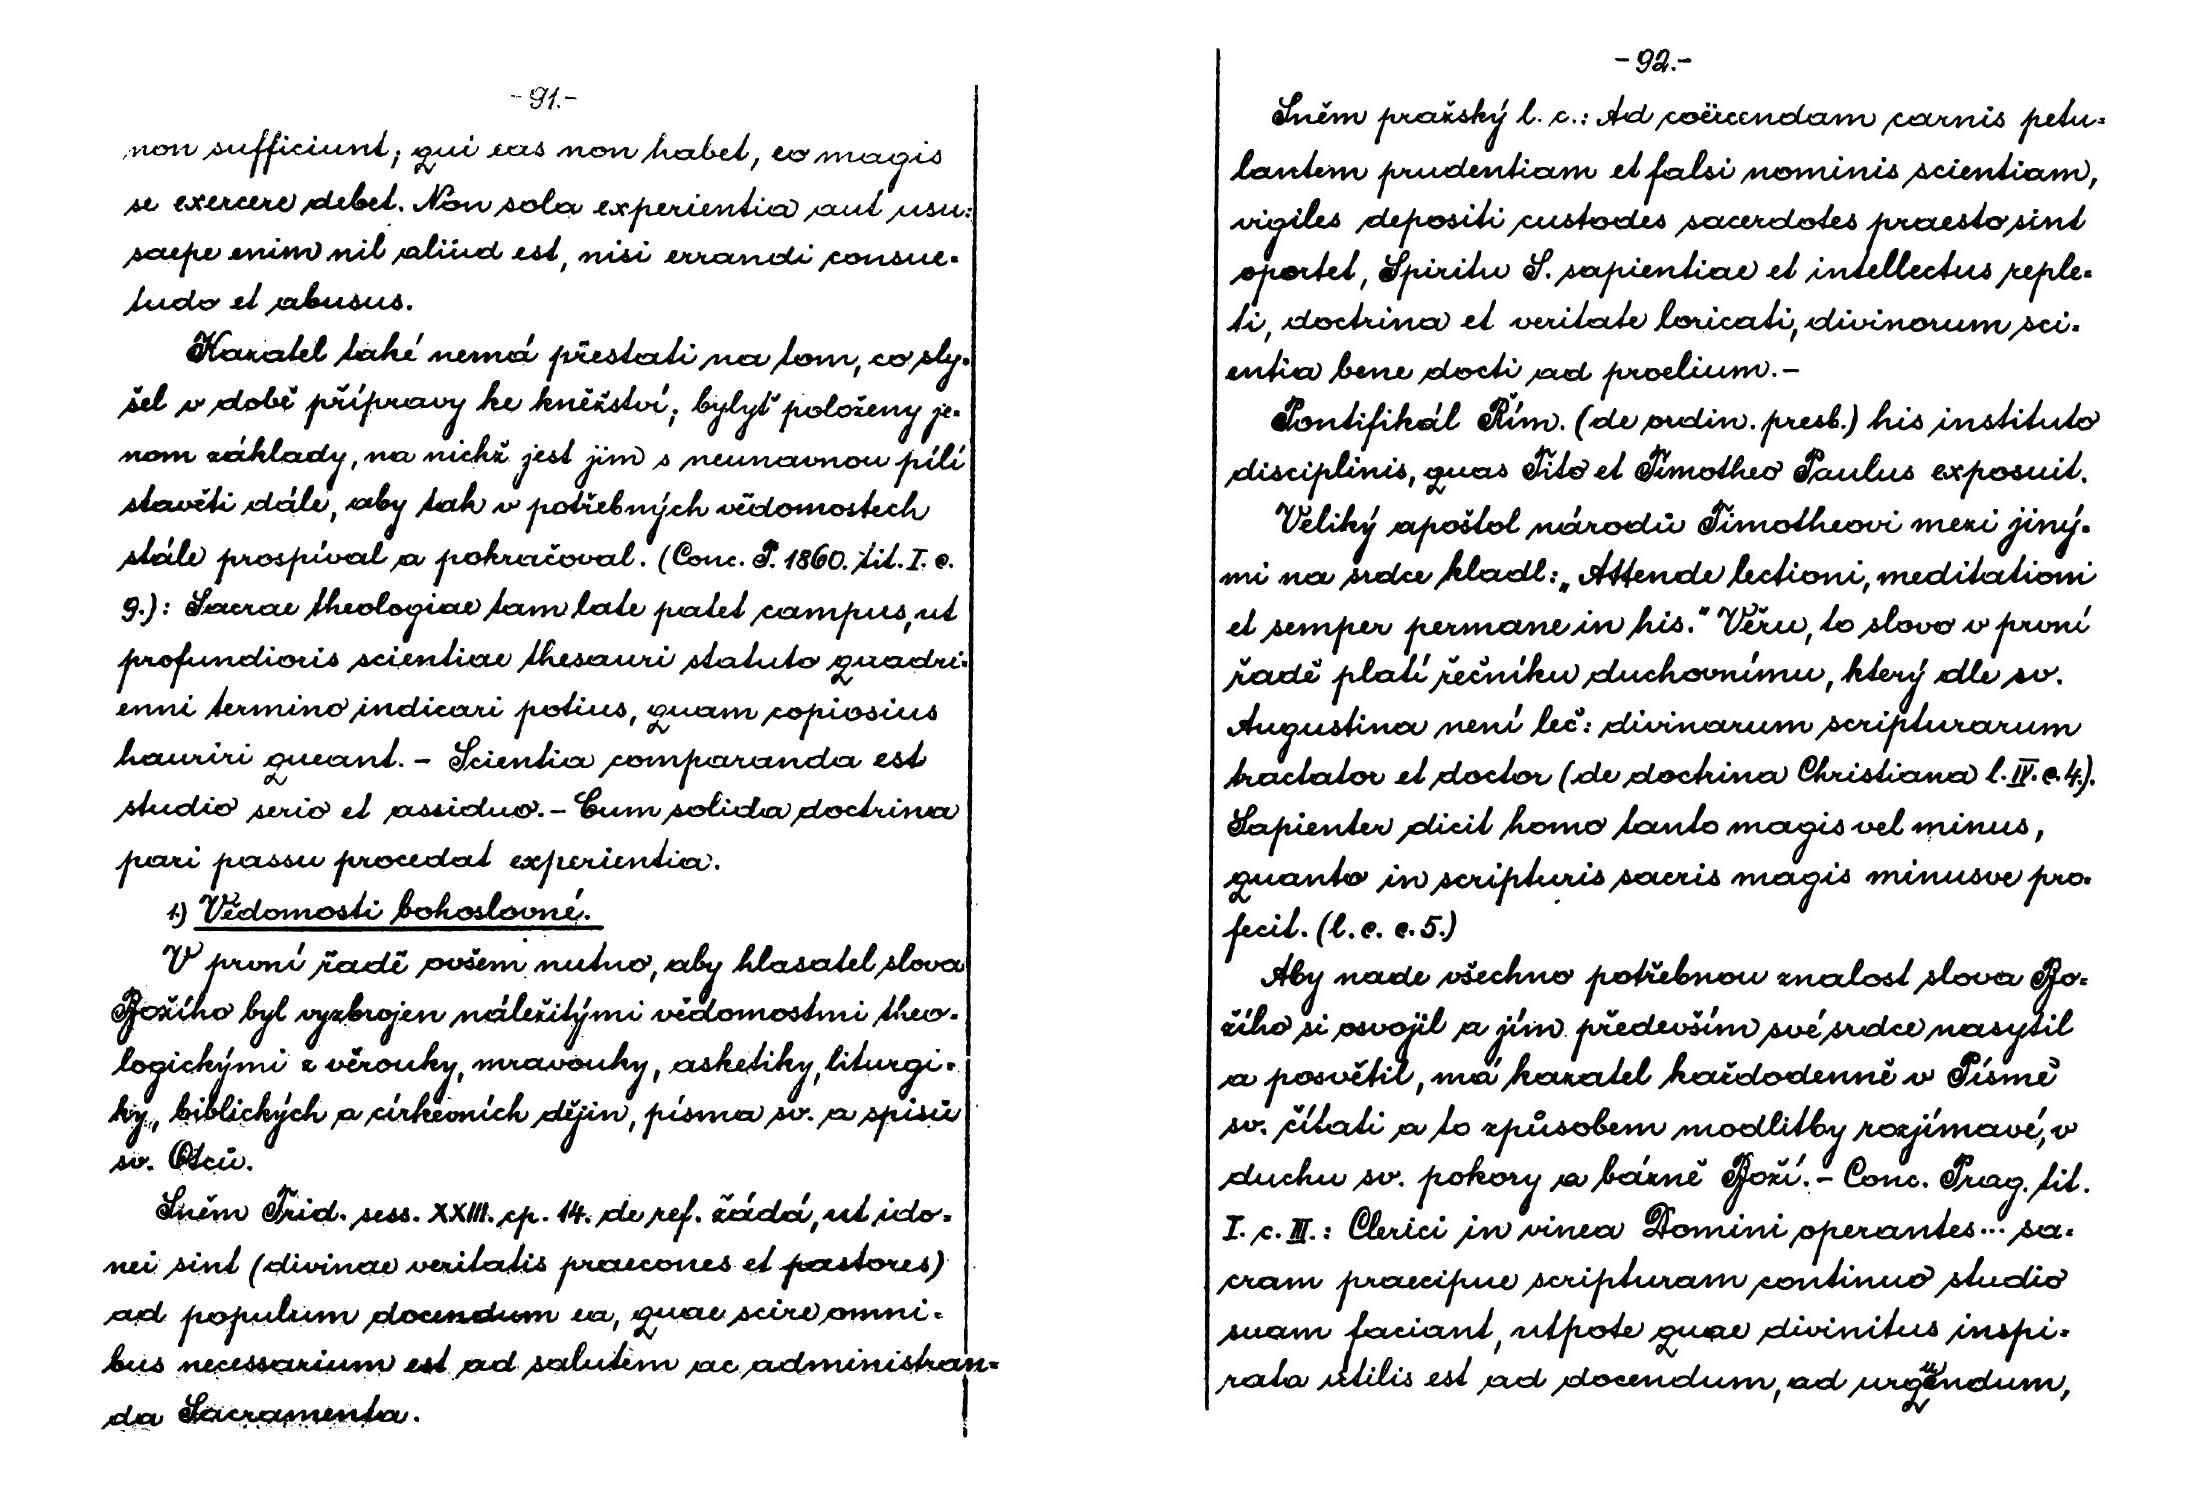 - 91. -
non sufficiunt; qui eas non habet, eo magis
se exercere debet. Non sola experientia aut usu:
saepe enim nil aliud est, nisi errandi consue-
tudo et abusus.
Kazatel také nemá přestati na tom, co sly-
šel v době přípravy ke kněžství; bylyť položeny je-
nom základy, na nichž jest jim s neunavnou pílí
stavěti dále, aby tak v potřebných vědomostech
stále prospíval a pokračoval. (Conc. P. 1860. tit. I. c.
9.): Sacrae theologiae tam late patet campus, ut
profundioris scientiae thesauri statuto quadri-
enni termino indicari potius, quam copiosius
hauriri queant. - Scientia comparanda est
studio serio et assiduo. - Cum solida doctrina
pari passu procedat experientia.
1.) Vědomosti bohoslovné.
V první řadě ovšem nutno, aby hlasatel slova
Božího byl vyzbrojen náležitými vědomostmi theo-
logickými z věrouky, mravouky, asketiky, liturgi-
ky, biblických a církevních dějin, písma sv. a spisů
sv. Otců.
Sněm Trid. sess. XXIII. cp. 14. de ref. žádá, ut ido-
nei sint (divinae veritatis praecones et pastores)
ad populum docendum ea, quae scire omni-
bus necessarium est ad salutem ac administran-
da Sacramenta.
- 92. -
Sněm pražský l. c.: Ad coërcendam carnis petu-
lantem prudentiam et falsi nominis scientiam,
vigiles depositi custodes sacerdotes praesto sint
oportet, Spiritu S. sapientiae et intellectus reple-
ti, doctrina et veritate loricati, divinorum sci-
entia bene docti ad proelium. -
Pontifikál Řím. (de ordin. presb.) his instituto
disciplinis, quas Tito et Timotheo Paulus exposuit.
Veliký apoštol národů Timotheovi mezi jiný-
mi na srdce kladl: „Attende lectioni, meditationi
et semper permane in his." Věru, to slovo v první
řadě platí řečníku duchovnímu, který dle sv.
Augustina není leč: divinarum scripturarum
tractator et doctor (de doctrina Christiana l. IV. c. 4.).
Sapienter dicit homo tanto magis vel minus,
quanto in scripturis sacris magis minusve pro-
fecit. (l. c. c. 5.)
Aby nade všechno potřebnou znalost slova Bo-
žího si osvojil a jím především své srdce nasytil
a posvětil, má kazatel každodenně v Písmě
sv. čítati a to způsobem modlitby rozjímavé, v
duchu sv. pokory a bázně Boží. - Conc. Prag. tit.
I. c. III.: Clerici in vinea Domini operantes... sa-
cram praecipue scripturam continuo studio
suam faciant, utpote quae divinitus inspi-
rata utilis est ad docendum, ad urguendum,